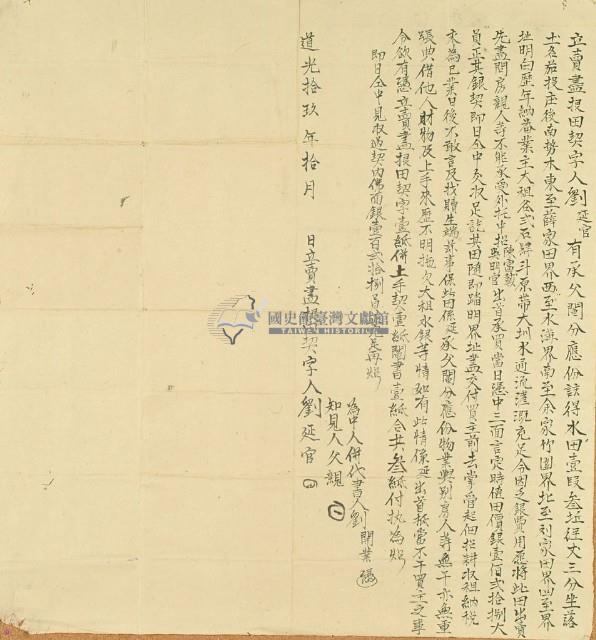 立賣盡根田契字人劉延官有承父鬮分應份該得水田壹段叁坵徑丈三分坐落
土名茄投庄後南勢木東至薛家田界西至水溝界南至余家竹圍界北至刘家田界四至界
址明白歷年納番業主大租谷弍石肆斗原帶大圳水通流灌溉充足今因乏銀費用愿將此田出賣
先盡問房親人等不能承受外托中招陳富載吳明官出首承買當日憑中三面言定時值田價銀壹佰弍拾捌大
員正其銀契即日仝中交收足訖其田隨即踏明界址盡交付買主前去掌管起佃招耕收租納稅
永為己業日後不敢言及找贖生端滋事保此田係延承父鬮分應份物業與別房人等無干亦無重
張典借他人財物及上手來歷不明拖欠大租水銀等情如有此情係延出首抵當不干買主之事
今欲有憑立賣盡根田契字壹紙併上手契壹紙鬮書壹紙合共叁紙付执為炤
即日仝中見收過契內佛面銀壹百弍拾捌員足再炤
為中人併代書人劉開業
知見人父親
道光拾玖年拾月 日立賣盡根田契字人劉延官
國史館臺灣文獻館
TAIWAN HISTORICA